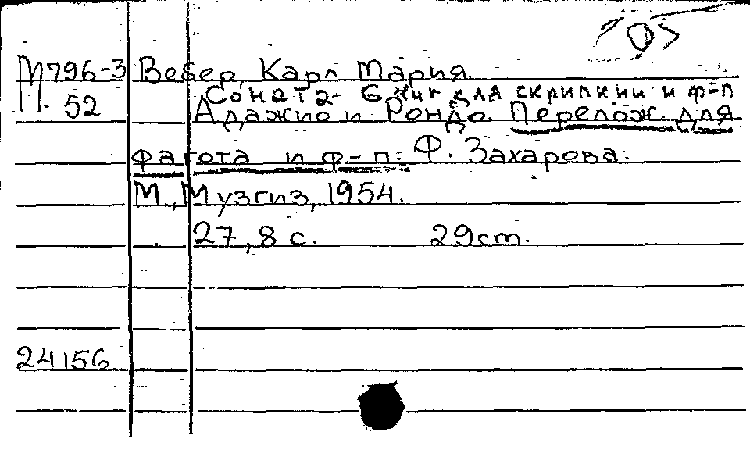 М796-3 Вебер, Карл Мария
Соната для скрипкии и ф-п
П. 52 Адажио и Рондо. Перелож. для
фагота и ф-п. Ф. Захарова.
М., Музгиз, 1954.
27, 8 с. 29cm.
24156